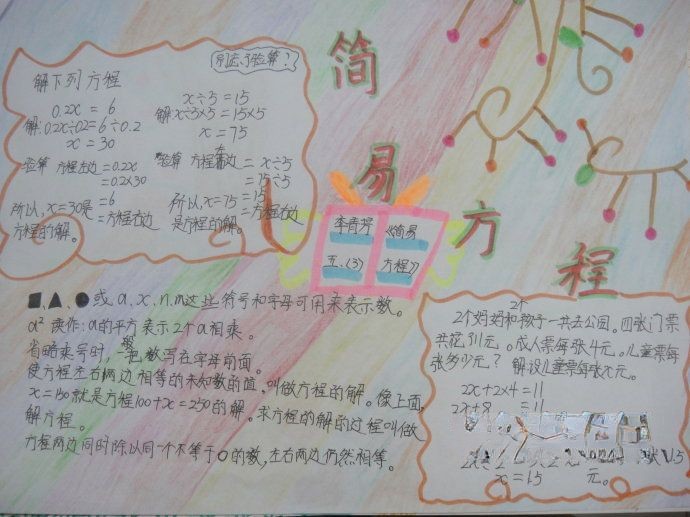 简易方程
别忘了验算?
解下列方程
0.2x = 6
解:0.2x÷0.2=6÷0.2
x = 30
验算 方程左边=0.2x
=0.2×30
=6
=方程右边
所以,x=30是
方程的解。
x÷5=15
解x÷5×5=15×5
x = 75
验算 方程右边 = x÷5
左
=75÷5
=15
=方程右边
所以,x=75
是方程的解。
李青芳
五、(3)
《简易
方程》
■、▲、●或a、x、n、m这些符号和字母可用来表示数。
a² 读作:a的平方表示2个a相乘。
省略乘号时,一般把数写在字母前面。
使方程左右两边相等的未知数的值,叫做方程的解。像上面,
x=150就是方程100+x=250的解。求方程的解的过程叫做
解方程。
方程两边同时除以同一个不等于0的数,左右两边仍然相等。
2个
2个妈妈和孩子一共去公园。四张门票
共花11元。成人票每张4元。儿童票每
张多少元? 解设儿童票每张x元。
2x+2×4=11
2x+8 =11
x=1.5
元。